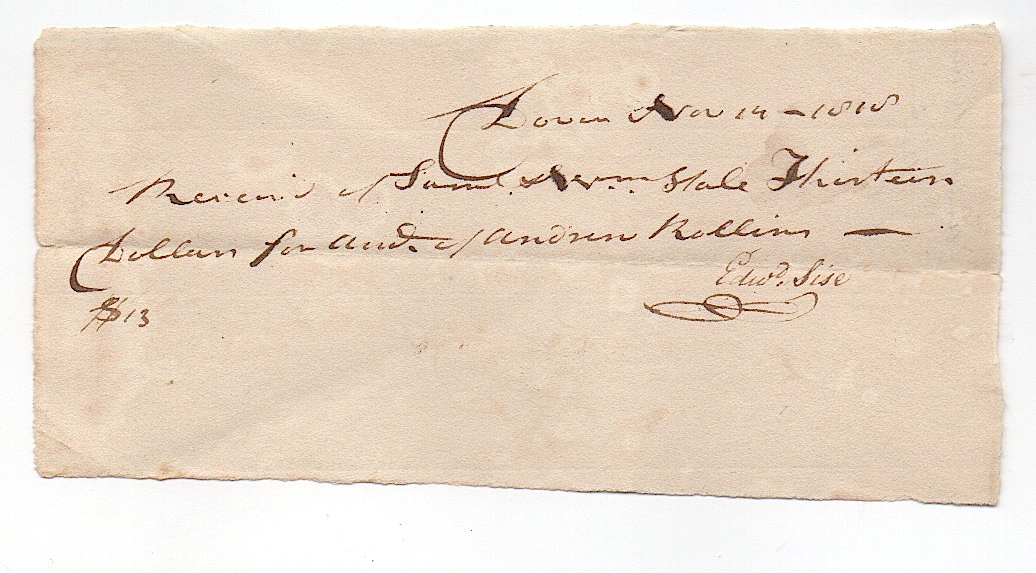 Dover Nov 14 – 1818
Receiv'd of Saml. & Wm. Hale Thirteen
Dollars for Acct. of Andrew Rollins —
Edwd. Sise
$13